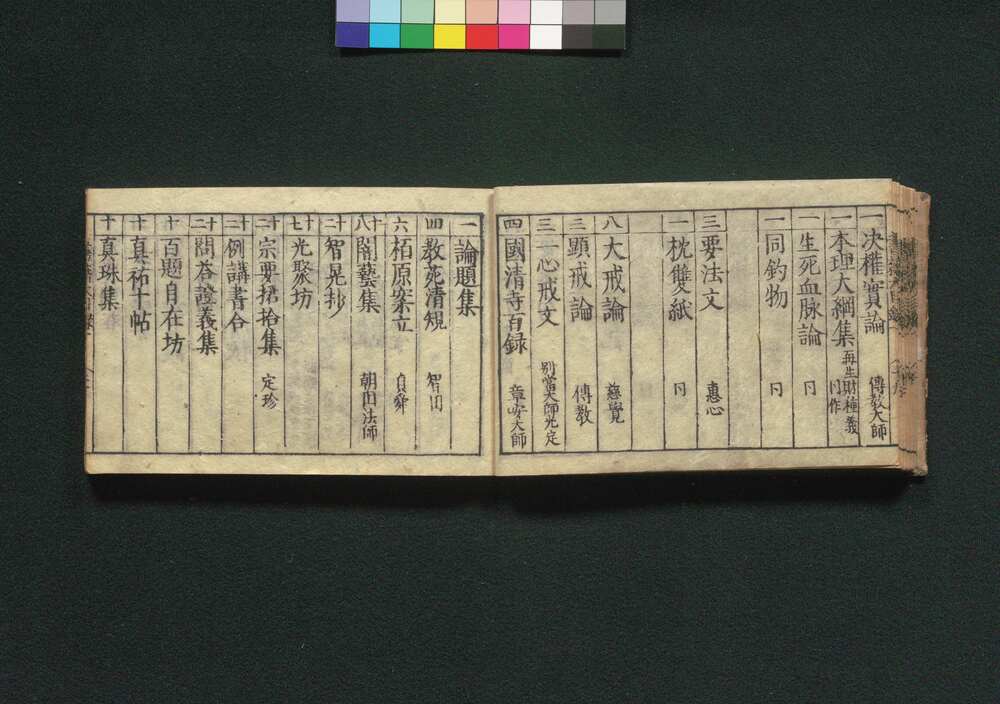 一 决權實論 傳教大師
一 本理大綱集 再生財種義 同作
一 生死血脉論 同
一 同釣物
三 要法文 惠心
一 枕雙紙 同
八 大戒論 慈覺
三 顯戒論 傳教
三 一心戒文 別當大師光定
四 國清寺百録 章安大師
一 論題集
四 教死清規 智目
六 栢原案立 貞舜
十八 闇藝集 朝田法師
十二 智晃抄
十七 光聚坊
十二 宗要捃拾集 定珍
十二 例講書合
十二 問荅證義集
十 百題自在坊
十 真祐十帖
十 真珠集